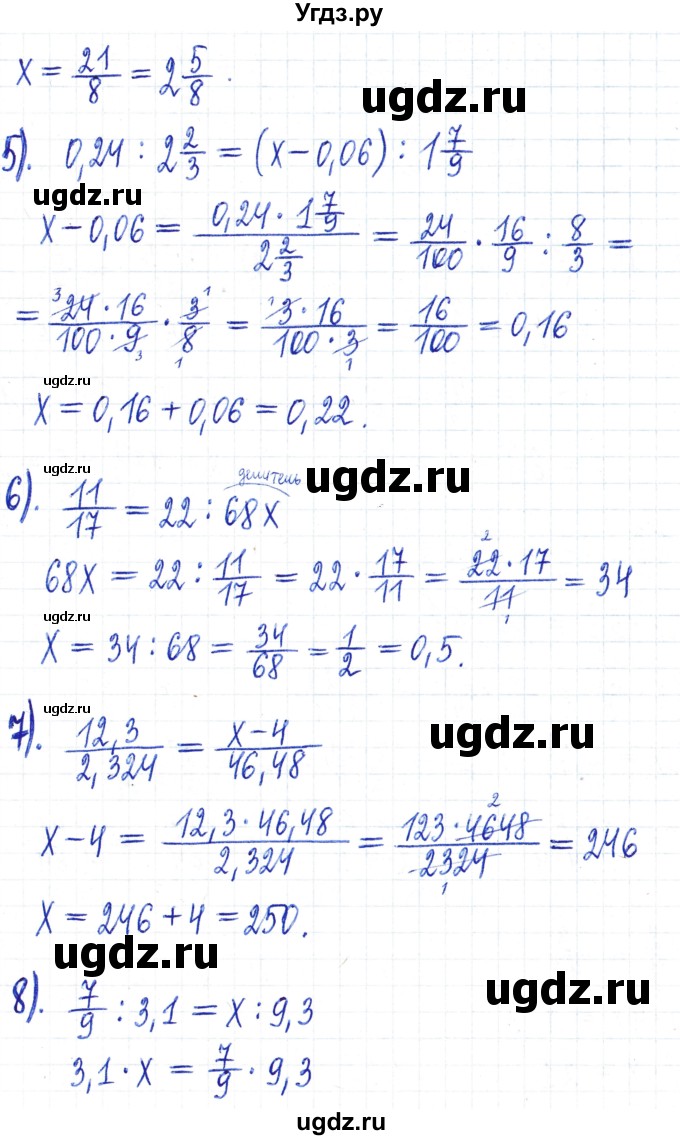 Угдз.ру
x = 21/8 = 2 5/8 .
ugdz.ru
5). 0,24 : 2 2/3 = (x – 0,06) : 1 7/9
ugdz.ru
x – 0,06 = 0,24 · 1 7/9 / 2 2/3 = 24/100 · 16/9 : 8/3 =
ugdz.ru
= 3 24 · 16 / 100 · 9 3 · 3 1 / 8 1 = 1 3 · 16 / 100 · 3 1 = 16/100 = 0,16
ugdz.ru
x = 0,16 + 0,06 = 0,22.
ugdz.ru
делитель
ugdz.ru
6). 11/17 = 22 : 68x
ugdz.ru
68x = 22 : 11/17 = 22 · 17/11 = 2 22 · 17 / 11 1 = 34
x = 34 : 68 = 34/68 = 1/2 = 0,5.
ugdz.ru
7). 12,3/2,324 = x – 4/46,48
ugdz.ru
ugdz.ru
x – 4 = 12,3 · 46,48 / 2,324 = 123 · 4648 2 / 2324 1 = 246
x = 246 + 4 = 250.
ugdz.ru
ugdz.ru
8). 7/9 : 3,1 = x : 9,3
3,1 · x = 7/9 · 9,3
ugdz.ru